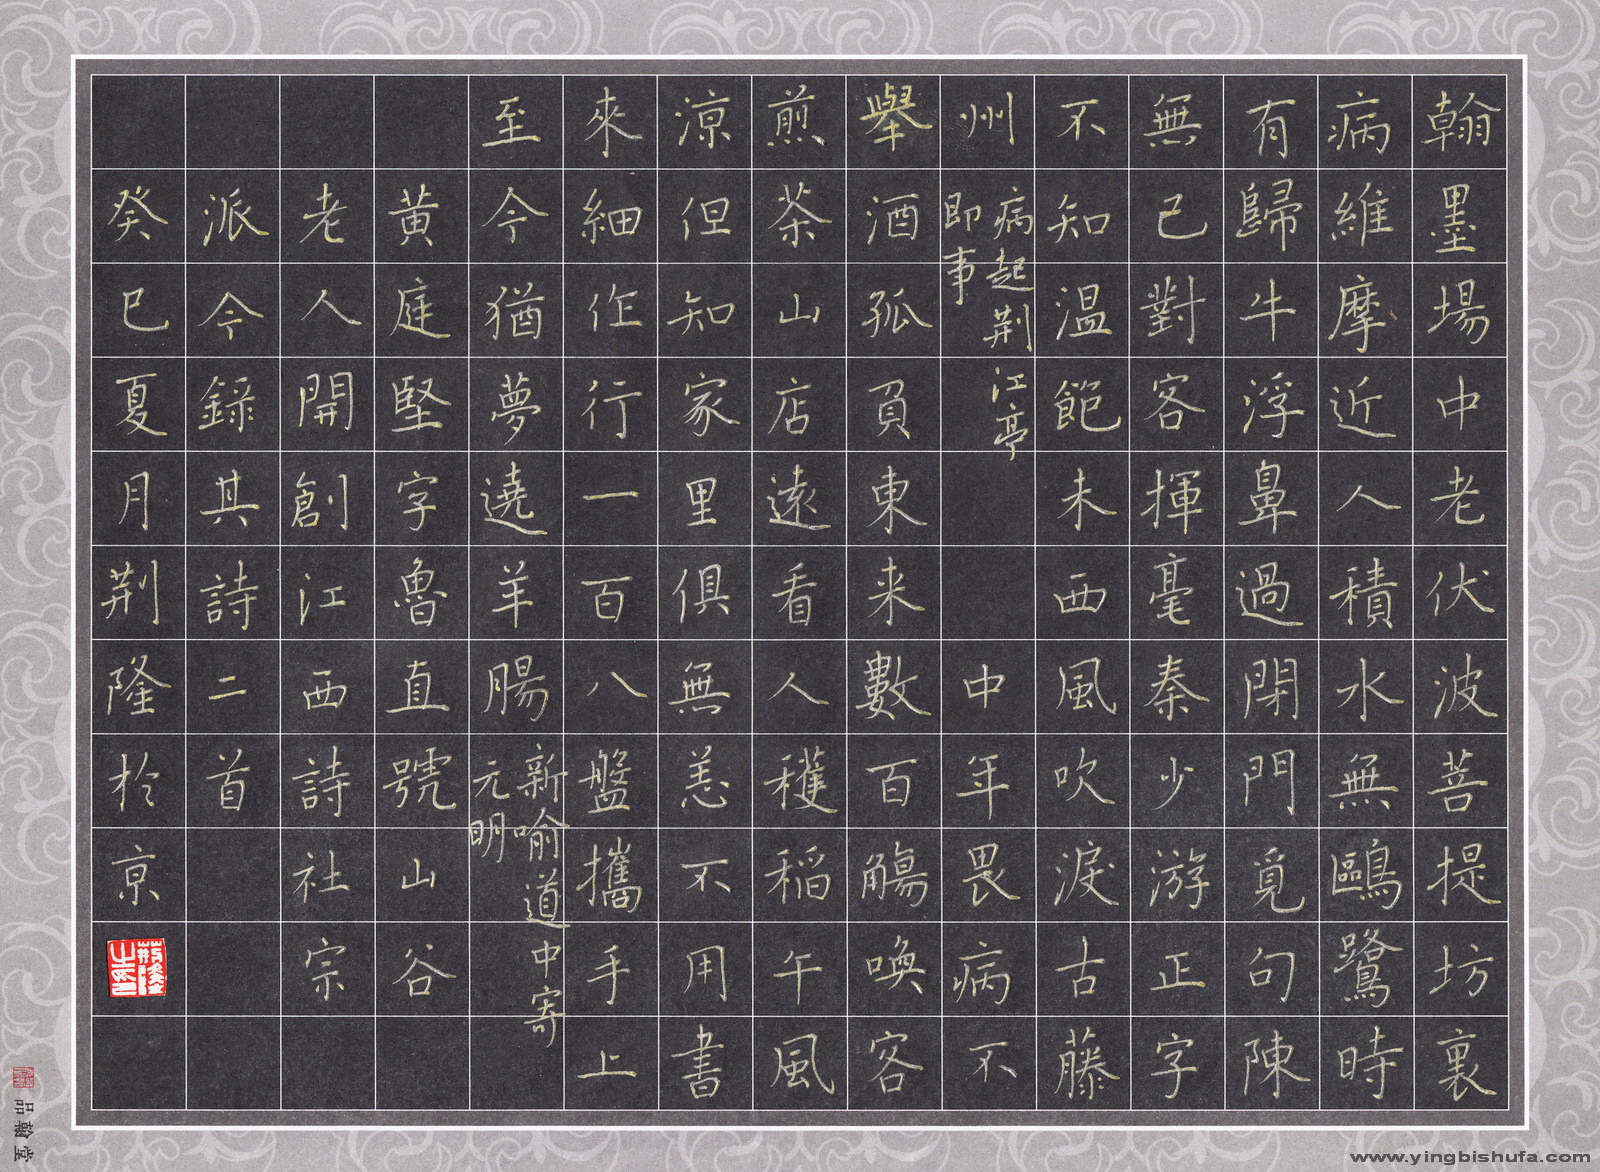 翰墨場中老伏波菩提坊裏
病維摩近人積水無鷗鷺時
有歸牛浮鼻過閉門覓句陳
無己對客揮毫秦少游正字
不知溫飽未西風吹淚古藤
州
病起荆江亭
即事
中年畏病不
舉酒孤負東来數百觴喚客
煎茶山店遠看人穫稻午風
涼但知家里俱無恙不用書
來細作行一百八盤攜手上
至今猶夢遶羊腸
新喻道中寄
元明
黃庭堅字魯直號山谷
老人開創江西詩社宗
派今錄其詩二首
癸巳夏月荆隆於京
品翰堂
www.yingbishufa.com